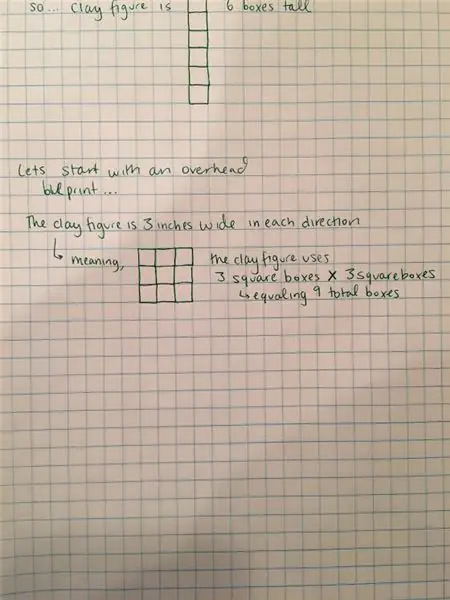 so... clay figure is 6 boxes tall
Lets start with an overhead
blueprint...
The clay figure is 3 inches wide in each direction
↳ meaning, the clay figure uses
3 square boxes X 3 square boxes
↳ equaling 9 total boxes